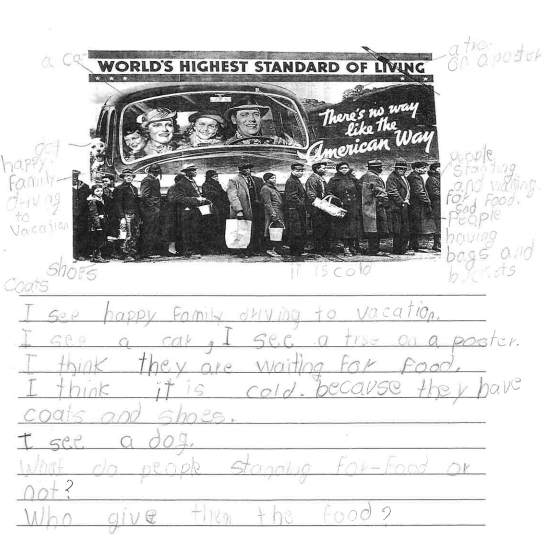 a car
a tree
on a poster
WORLD'S HIGHEST STANDARD OF LIVING
There's no way
like the
American Way
dog
happy
family
driving
to
vacation
people
standing
and waiting
for food.
and
people
having
bags and
buckets
shoes
coats
it is cold
I see happy family driving to vacation.
I see a car, I see a tree on a poster.
I think they are waiting for food.
I think it is cold. because they have
coats and shoes.
I see a dog.
What do people standing for-food or
not?
Who give them the food?